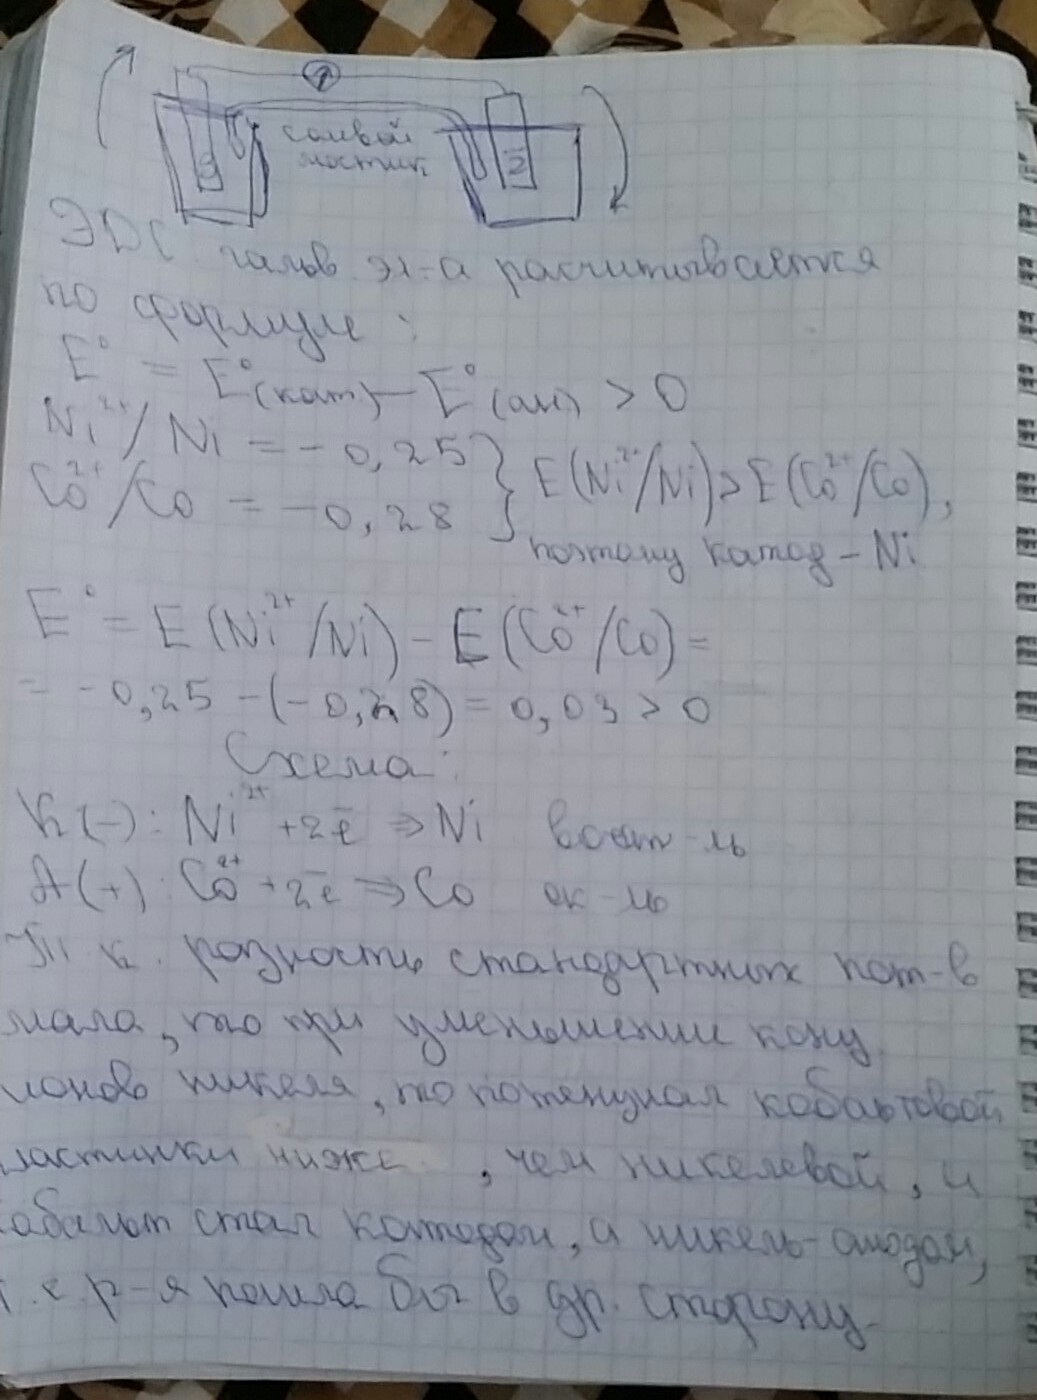 солевой
мостик
ЭДС гальв эл-а расчитывается
по формуле:
E° = E°(кат) - E°(ан) > 0
Ni²⁺/Ni = -0,25 } E(Ni²⁺/Ni) > E(Co²⁺/Co),
Co²⁺/Co = -0,28
поэтому катод - Ni
E° = E(Ni²⁺/Ni) - E(Co²⁺/Co) =
= -0,25 - (-0,28) = 0,03 > 0
Схема:
K(-): Ni²⁺ + 2ē ⇒ Ni восст-ль
A(+): Co²⁺ + 2ē ⇒ Co ок-ль
Т.к. разность стандартных пот-в
мала, то при уменьшении конц.
ионов никеля, то потенциал кобальтовой
пластинки ниже, чем никелевой, и
кобальт стал катодом, а никель-анодом,
т.е р-я пошла бы в др. сторону.